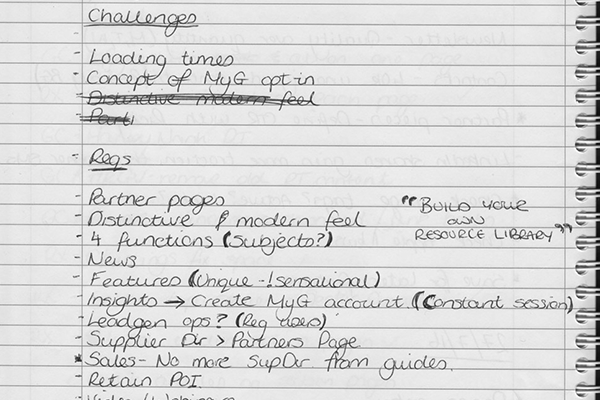 Challenges
- Loading times
- Concept of MyG opt-in
- Distinctive modern feel
- Part
- Reqs
- Partner pages
- Distinctive & modern feel
- 4 functions (Subjects?)
"BUILD YOUR
OWN
RESOURCE LIBRARY"
- News
- Features (Unique - !sensational)
- Insights → Create MyG account. (Constant session)
- Leadgen ops? (Reg users)
- Supplier Dir > Partners Page
* Sales - No more SupDir from guides.
- Retain POI.